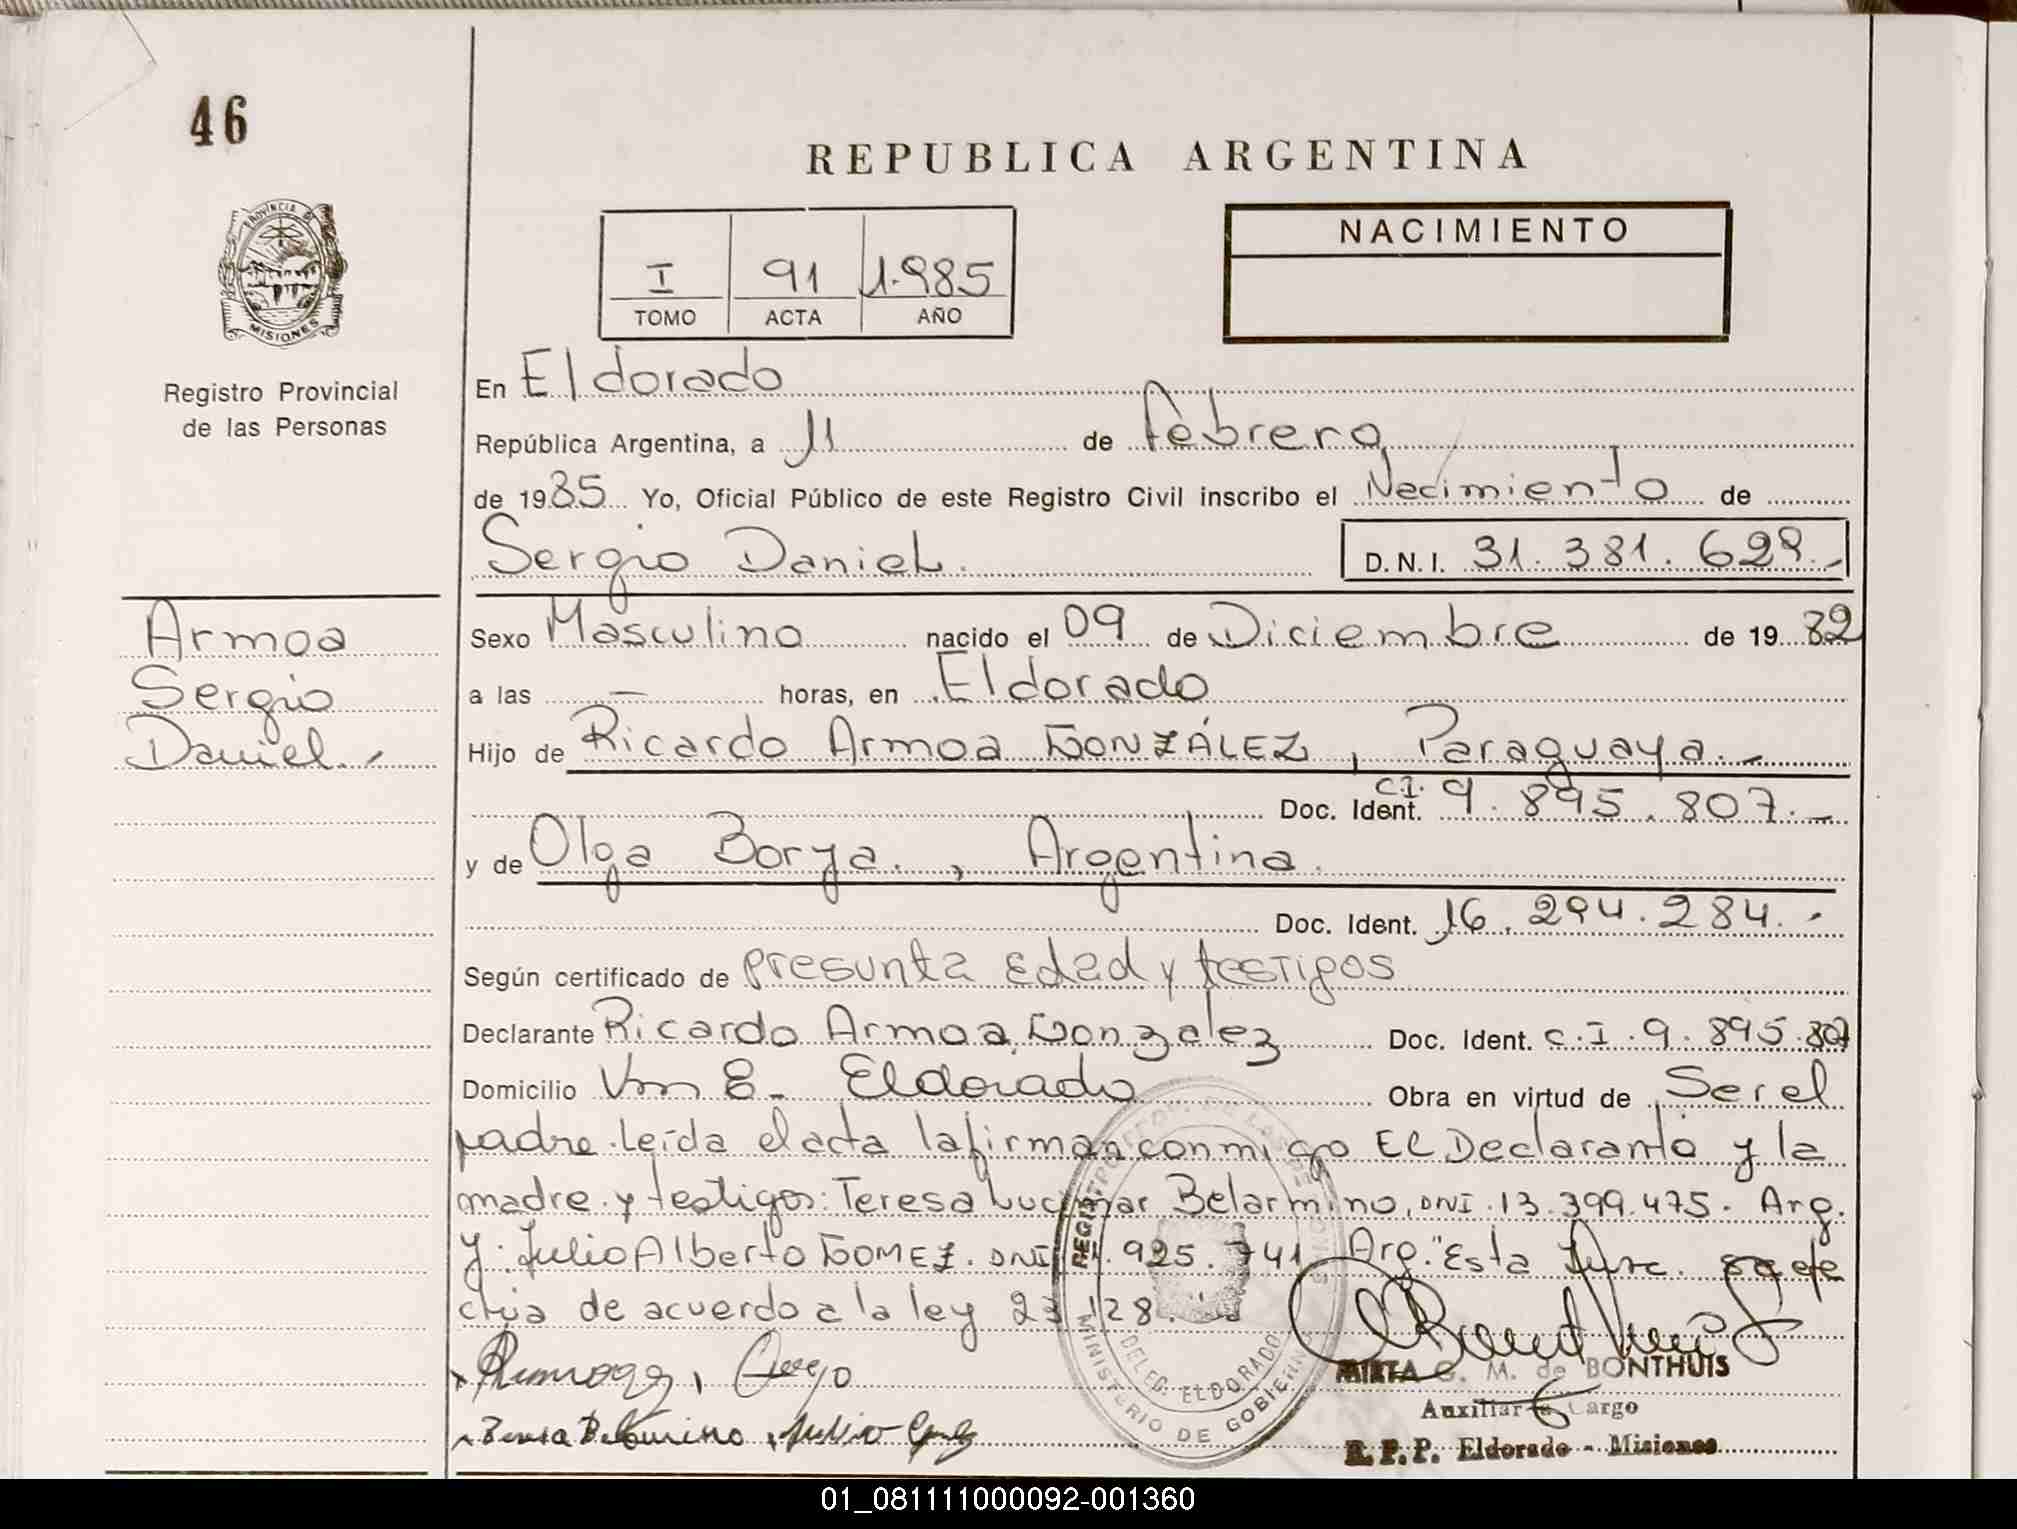 46
REPUBLICA ARGENTINA
PROVINCIA DE
MISIONES
NACIMIENTO
I 91 1.985
TOMO ACTA AÑO
Registro Provincial
de las Personas
En Eldorado
República Argentina, a 11 de febrero
de 1985 Yo, Oficial Público de este Registro Civil inscribo el Nacimiento de
Sergio Daniel. D.N.I. 31.381.628.-
Armoa
Sergio
Daniel.-
Sexo Masculino nacido el 09 de Diciembre de 19 82
a las — horas, en Eldorado
Hijo de Ricardo Armoa GONZÁLEZ, Paraguaya.-
Doc. Ident. C.I. 9.895.807.-
y de Olga Borya., Argentina.
Doc. Ident. 16.294.284.-
Según certificado de presunta edad y testigos
Declarante Ricardo Armoa Gonzalez Doc. Ident. C.I.9.895.807
Domicilio Km 8- Eldorado Obra en virtud de Ser el
padre. Leída el acta la firman conmigo El Declarante y la
madre y testigos: Teresa Lucimar Belarmino, DNI.13.399.475. Arg.
y: Julio Alberto GOMEZ. DNI 925.741 Arg. "Esta se efe
ctúa de acuerdo a la ley 23.128."
MINISTERIO DE GOBIERNO
DELEG. ELDORADO
MIRTA G. M. de BONTHUIS
Auxiliar a Cargo
R. P. P. Eldorado - Misiones
01_081111000092-001360